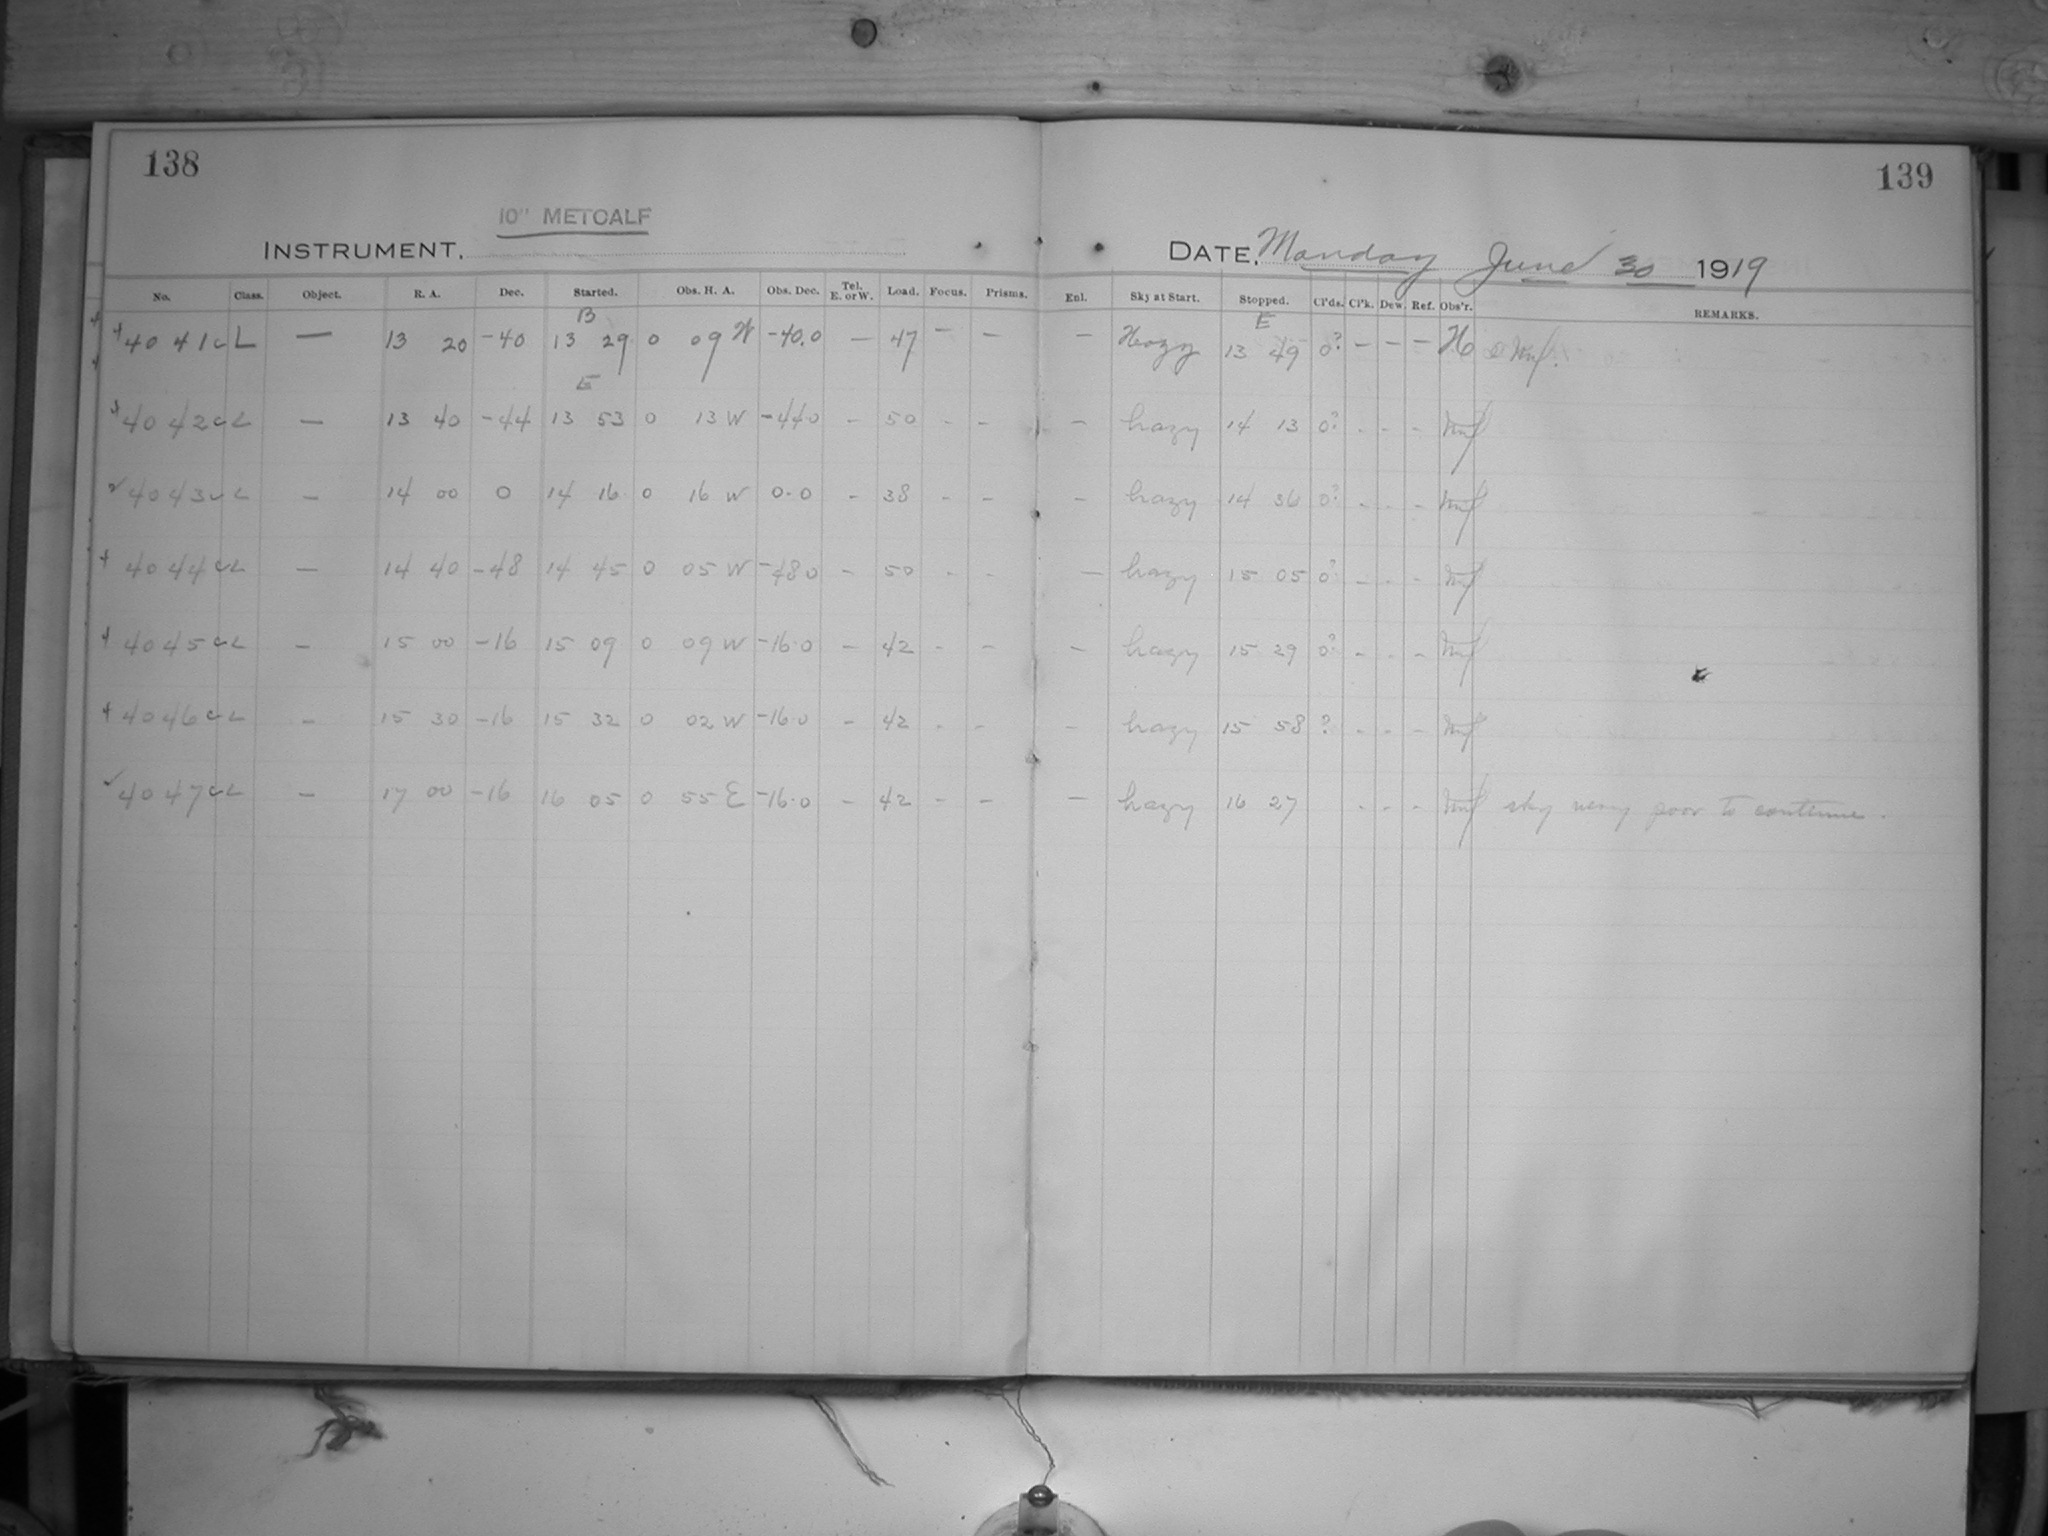 138
139
10" METCALF
INSTRUMENT.
DATE. Monday June 30 1919
No. Class. Object. R. A. Dec. Started. Obs. H. A. Obs. Dec. Tel. E. or W. Load. Focus. Prisms. Enl. Sky at Start. Stopped. Cl'ds. Cl'k. Dew. Ref. Obs'r. REMARKS.
B E
4041 c L — 13 20 -40 13 29 0 09 W -40.0 — 47 — — — Hazy 13 49 0? — — — H
E
4042 c L — 13 40 -44 13 53 0 13 W -44.0 - 50 - - - hazy 14 13 0? - - -
4043 c L — 14 00 0 14 16 0 16 W 0.0 - 38 - - - hazy 14 36 0? - - -
4044 c L — 14 40 -48 14 45 0 05 W -48.0 - 50 - - — hazy 15 05 0? - - -
4045 c L — 15 00 -16 15 09 0 09 W -16.0 - 42 - - - hazy 15 29 0? - - -
4046 c L - 15 30 -16 15 32 0 02 W -16.0 - 42 - - - hazy 15 58 ? - - -
4047 c L - 17 00 -16 16 05 0 55 E -16.0 - 42 - - - hazy 16 27 - - - sky very poor to continue.